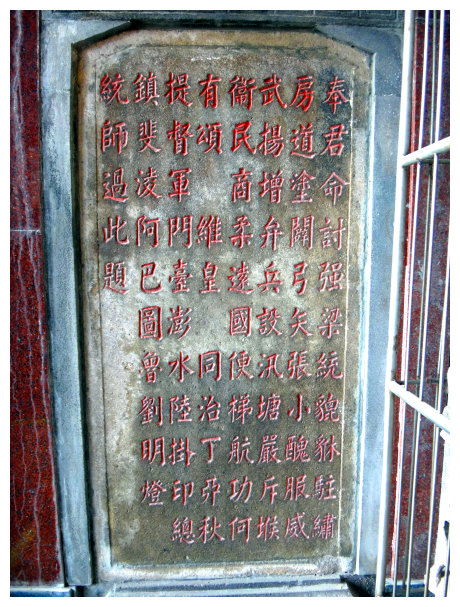 奉君命討强梁統貔貅駐繡
房道塗闢弓矢張小醜服威
武揚增弁兵設汛塘嚴斥堠
衞民商柔遠國便梯航功何
有頌維皇同治丁夘秋
提督軍門臺澎水陸掛印總
鎮斐凌阿巴圖魯劉明燈
統師過此題